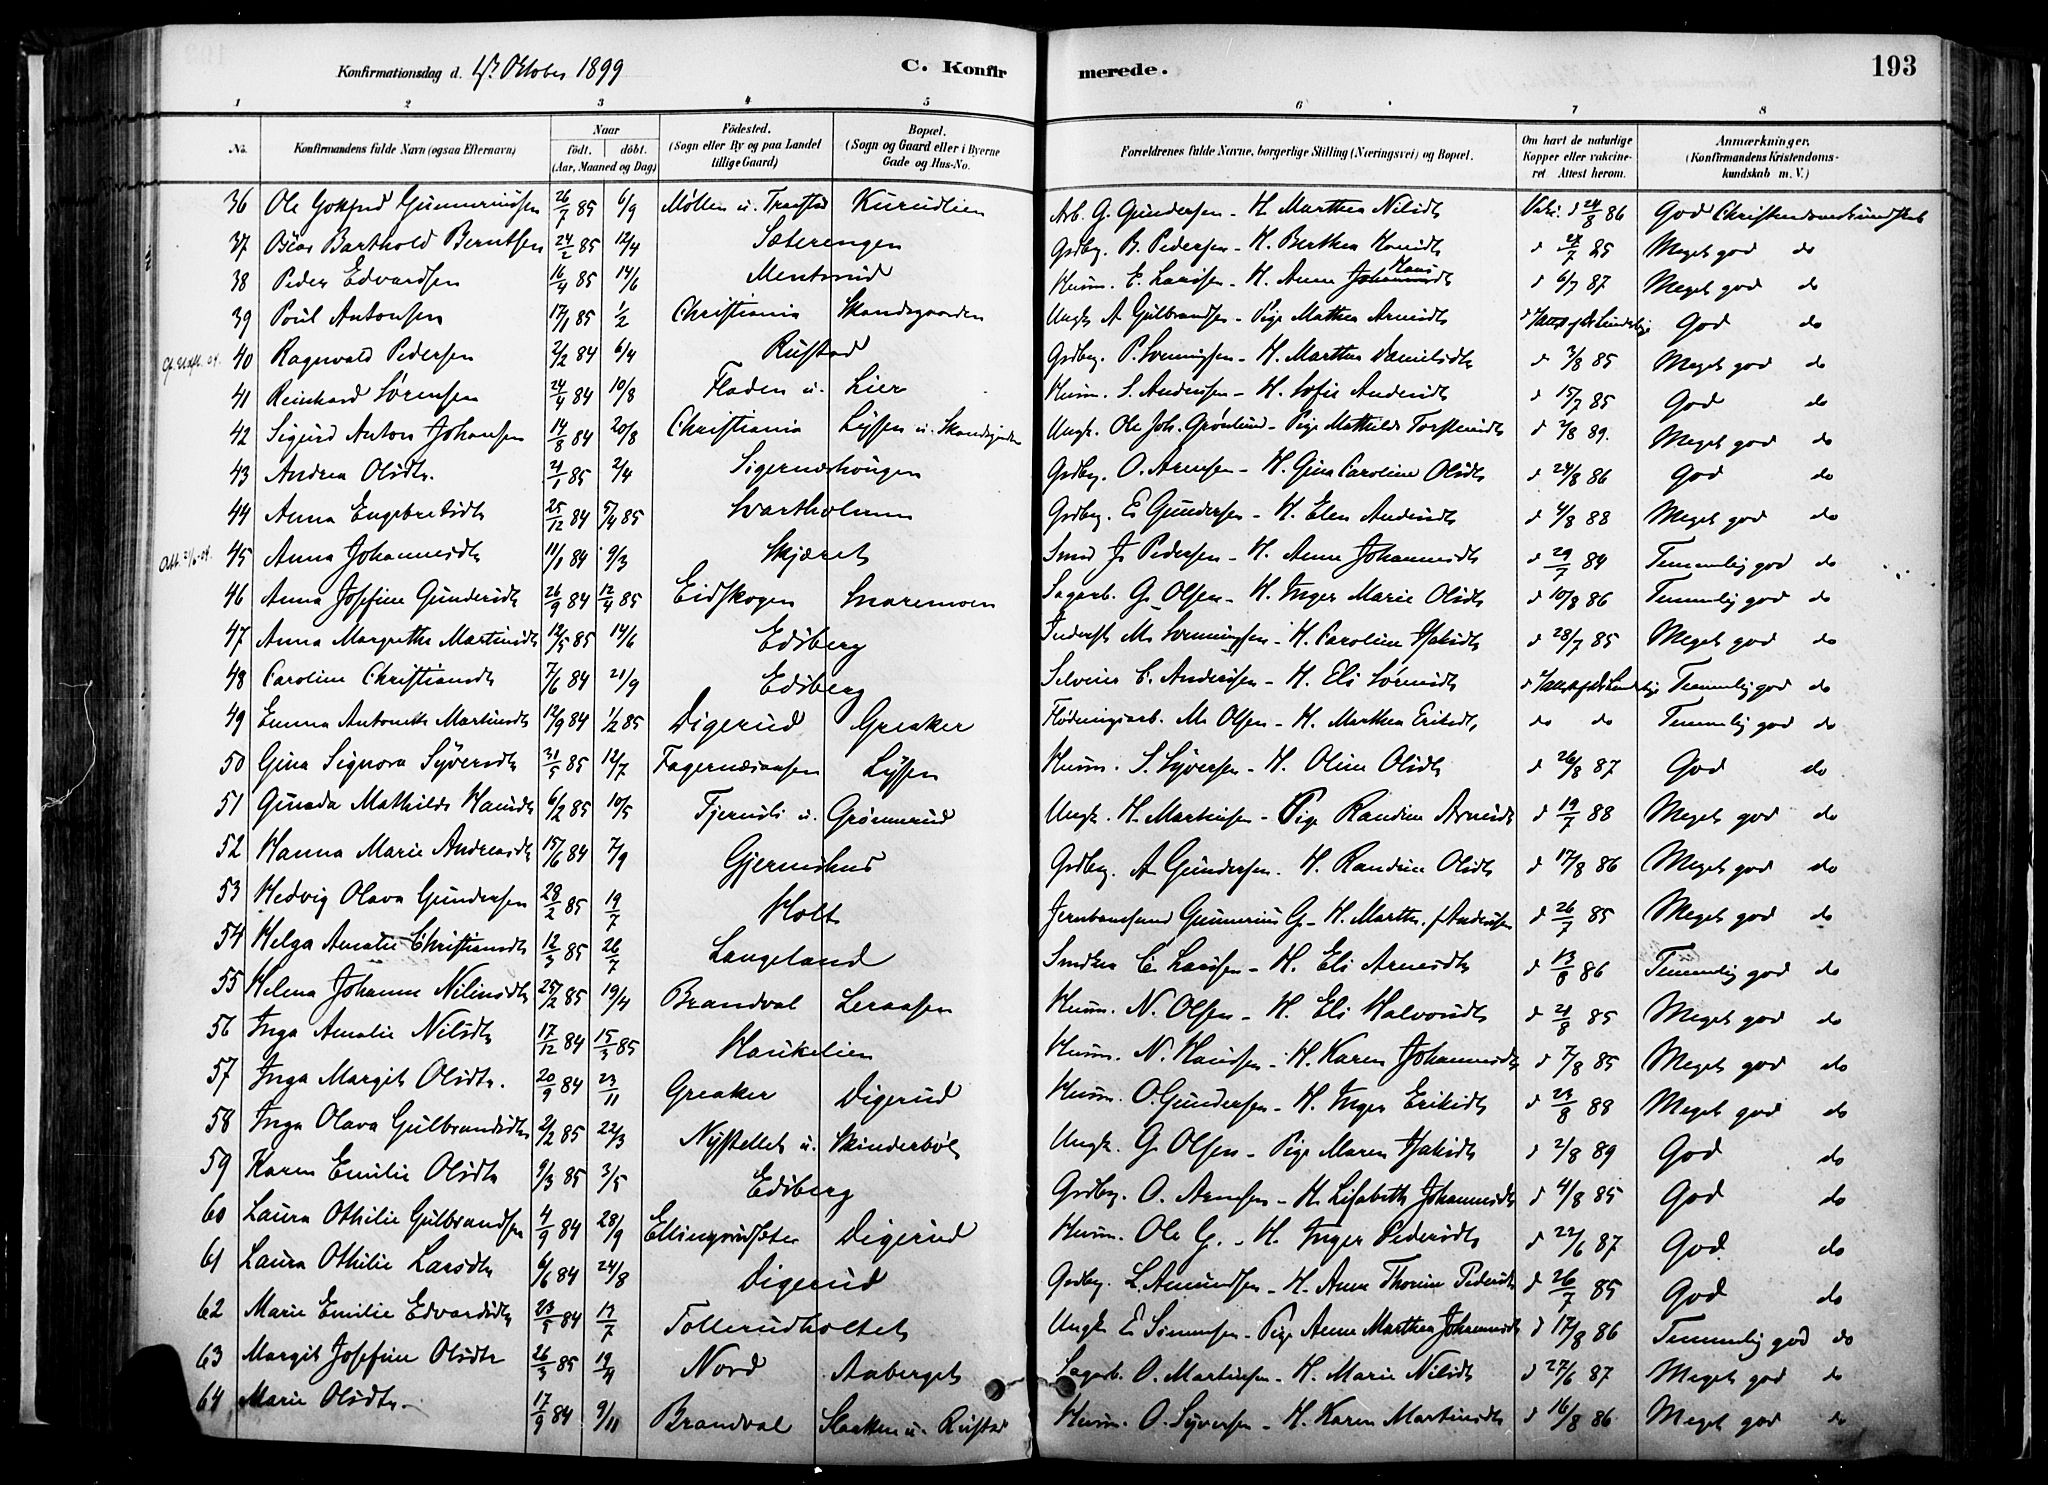 Konfirmationsdag d. Oktober 1899 C. Konfirmerede. 193
1 2 3 4 5 6 7 8
No. Konfirmandens fulde Navn (ogsaa Efternavn) Naar födt. döbt. (Aar, Maaned og Dag) Födested. (Sogn eller By og paa Landet tillige Gaard) Bopæl. (Sogn og Gaard eller i Byerne Gade og Hus-No. Forældrenes fulde Navne, borgerlige Stilling (Næringsvei) og Bopæl. Om havt de naturlige Kopper eller vakcineret Attest herom. Anmærkninger. (Konfirmandens Kristendomskundskab m. V.)
36 Ole Gunneriussen 26/7 85 6/9 Møllen u. Kurudlien Arb. G. Gundersen - H. Marthea Nilsdt 24/8 86 God Christendomskundskab
37 Barthold Berntsen 24/2 85 12/4 Sæterengen Grdbg. B. Pedersen - H. Berthea d 27/7 85 Meget god do
38 Peder Edvardsen 16/4 85 14/6 Mentsrud Husm. E. Larssen - H. Anne Hans d 6/7 87 Meget god do
39 Poul Antonsen 17/1 85 1/2 Christiania Skandsgaarden Ungk. A. Gulbrandsen - Pige Mathea Arnesdt God do
40 Ragnvald Pedersen 2/2 84 6/4 Rustad Grdbg. P. Svenningsen - H. Marthea Danielsdt d 3/8 85 Meget god do
41 Reinhard Sørensen 24/4 84 10/8 Fladen u. Lier Husm. S. Andersen - H. Sofie Andersdt d 15/7 85 God do
42 Sigurd Anton Johansen 14/8 84 20/8 Christiania Lyssen u. Ungk. Ole Joh. Grønlund - Pige Mathilde d 2/8 89. Meget god do
43 Andrea Olsdt. 21/1 85 2/4 Sigernæshougen Grdbg. O. Arnesen - H. Gina Caroline Olsdt d 24/8 86 God do
44 Anna Engebretsdt 25/12 84 5/4 85 Svartholmen Grdbg. E. Gundersen - H. Elen Andersdt d 4/8 88 Meget god do
45 Anna Johannesdt 11/1 84 9/3 Skjæret Smed J. Pedersen - H. Anne Johannesdt d 29/7 84 Temmelig god do
46 Anna Josefine Gundersdt 26/9 84 12/4 85 Eidskogen Snaremoen Sagarb. G. Olsen - H. Inger Marie Olsdt d 10/8 86 Temmelig god do
47 Anna Margrethe Martinsdt 12/5 85 14/6 Edsberg Inderst M. Svenningsen - H. Caroline Isaksdt d 28/7 85 Meget god do
48 Caroline Christiansdt 7/6 84 21/9 Edsberg Selveier C. Anderssen - H. Eli Sørensdt Temmelig god do
49 Emma Antonette Martinsdt 12/9 84 1/2 85 Digerud Greaker Flødningsarb. M. Olsen - H. Marthea Eriksdt do do Temmelig god do
50 Gina Signora Syversdt 31/5 85 12/7 Fagernæsaasen Lyssen Husm. S. Syversen - H. Oline Olsdt d 26/8 87 God do
51 Gunda Mathilde Hansdt 6/2 85 10/5 Tjernsli u. Grønnerud Ungk. H. Martinsen - Pige Randine Arnesdt d 19/7 88 Meget god do
52 Hanna Marie Andreasdt 15/6 84 7/9 Gjerneshus Grdbg. A. Gundersen. H. Randine Olsdt d 17/8 86 Meget god do
53 Hedvig Olava Gundersen 28/2 85 19/7 Holt Gunnerius G. - H. Marthe. f. Andersen d 26/7 85 Meget god do
54 Helga Amalie Christiansdt 12/3 85 26/7 Langeland C. Larssen - H. Eli Arnesdt d 13/8 86 Temmelig god do
55 Helena Johanne Nilsdt 25/2 85 19/4 Brandval Leraasen Husm. N. Olsen - H. Eli Halvorsdt d 21/8 85 Meget god do
56 Inga Amalie Nilsdt 17/12 84 15/3 85 Haukelien Husm. N. Hansen - H. Karen Johannesdt d 7/8 85 Meget god do
57 Inga Margit Olsdt. 20/9 84 23/11 Greaker Digerud Husm. O. Gundersen - H. Inger Eriksdt d 29/8 88 Meget god do
58 Inga Olava Gulbrandsdt 2/2 85 22/3 Nystellet u. Skinderböl Ungk. G. Olsen - Pige Maren Isaksdt d 2/8 89 God do
59 Karen Emilie Olsdt 9/3 85 3/5 Edsberg Grdbg. O. Arnesen - H. Lisabeth Johannesdt d 4/8 85 God do
60 Laura Othilie Gulbrandsen 4/9 84 28/9 Ellingrudsæter Digerud Husm. Ole G. - H. Inger Pedersdt d 22/6 87 God do
61 Laura Othilie Larsdt 6/6 84 24/8 Digerud Grdbg. L. Amundsen - H. Anne Thorine Pedersdt d 26/7 85 God do
62 Marie Emilie Edvardsdt 23/5 84 13/7 Tollerudholtet Ungk. E. Simensen - Pige Anne Marthea Johannesdt d 17/8 86 Temmelig god do
63 Margit Josefine Olsdt 26/3 85 19/4 Nord Aaberget Sagarb. O. Martinsen - H. Marie Nilsdt d 27/6 87 Meget god do
64 Marie Olsdt. 17/9 84 9/11 Brandval u. Rustad Husm. O. Syversen - H. Karen Martinsdt d 16/8 86 Meget god do